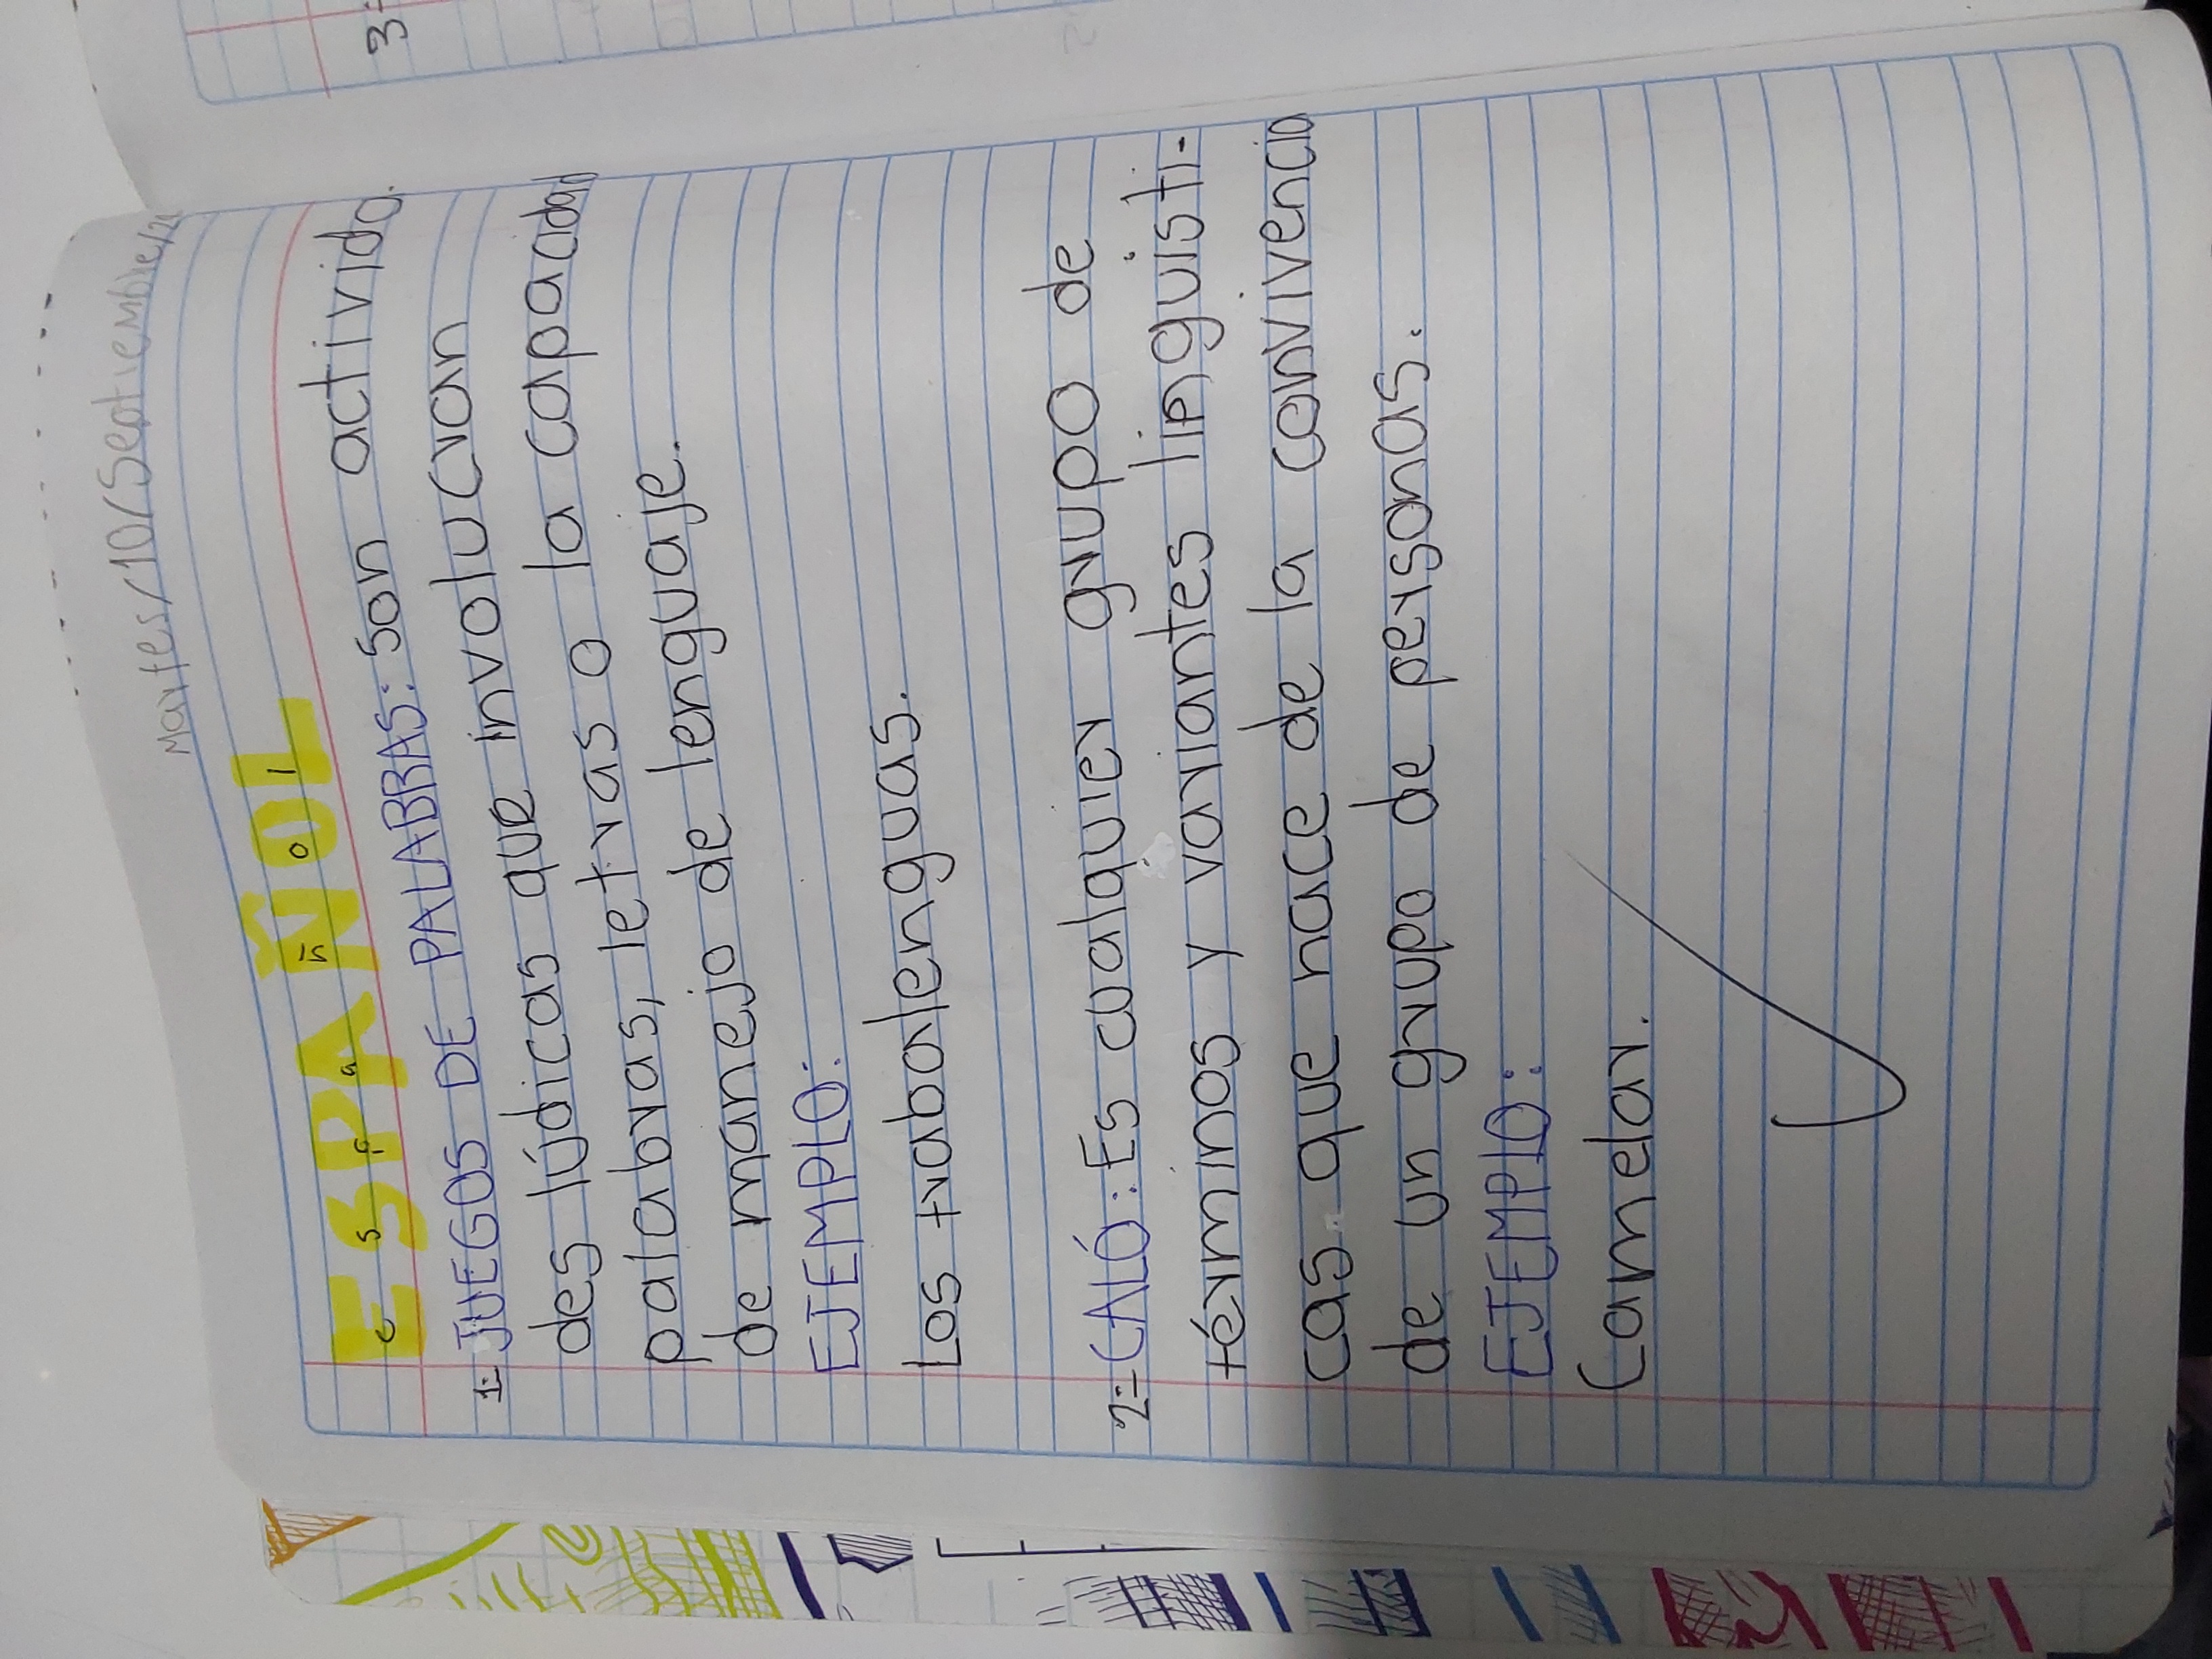 Martes/10/Septiembre/24
ESPAÑOL
e s p a ñ o l
1=JUEGOS DE PALABRAS: Son activida.
des lúdicas que involucran
palabras, letras o la capacidad
de manejo de lenguaje.
EJEMPLO:
Los trabalenguas.
2=CALÓ: Es cualquier grupo de
términos y variantes lingüisti-
cas que nace de la convivencia
de un grupo de personas.
EJEMPLO:
Camelar.
3=